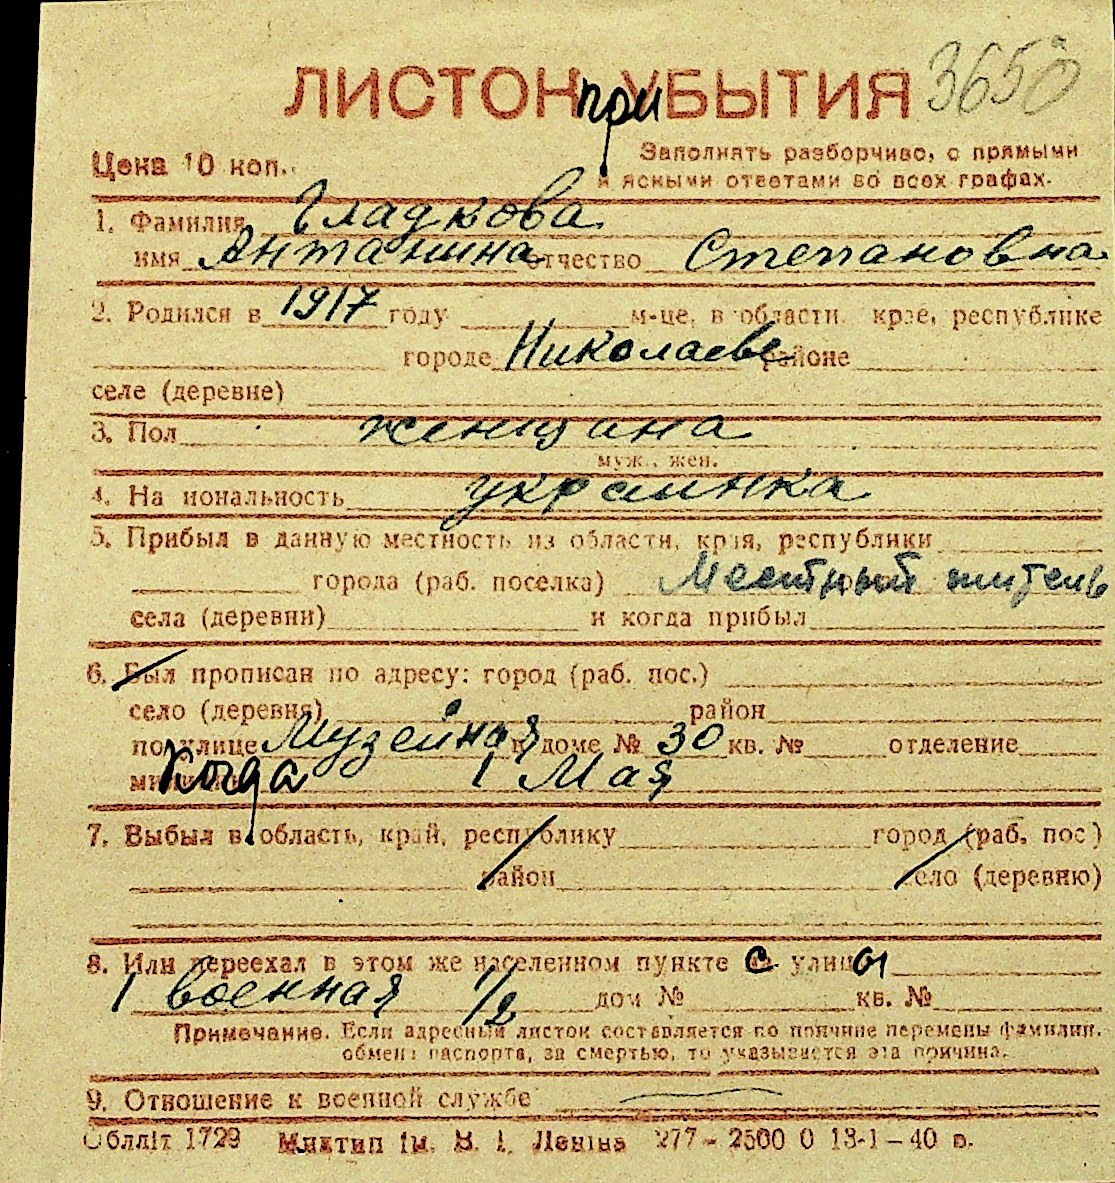 ЛИСТОК при УБЫТИЯ 3650
Цена 10 коп.
Заполнять разборчиво, с прямыми
и ясными ответами во всех графах.
1. Фамилия Гладкова
имя Антанина отчество Степановна
2. Родился в 1917 году м-це, в области, крае, республике
городе Николаеве районе
селе (деревне)
3. Пол женщина
муж., жен.
4. Национальность украинка
5. Прибыл в данную местность из области, края, республики
города (раб. поселка) Местный житель
села (деревни) и когда прибыл
6. Был прописан по адресу: город (раб. пос.)
село (деревня) район
по улице Музейная в доме № 30 кв. № отделение
когда 1 Мая
7. Выбыл в область, край, республику город (раб. пос)
район село (деревню)
8. Или переехал в этом же населенном пункте с улицы
1 военная 1/2 дом № кв. №
Примечание. Если адресный листок составляется по причине перемены фамилии,
обмена паспорта, за смертью, то указывается эта причина.
9. Отношение к военной службе
Облліт 1729 Миктип ім. В. І. Леніна 277 – 2500 0 13-1 – 40 в.